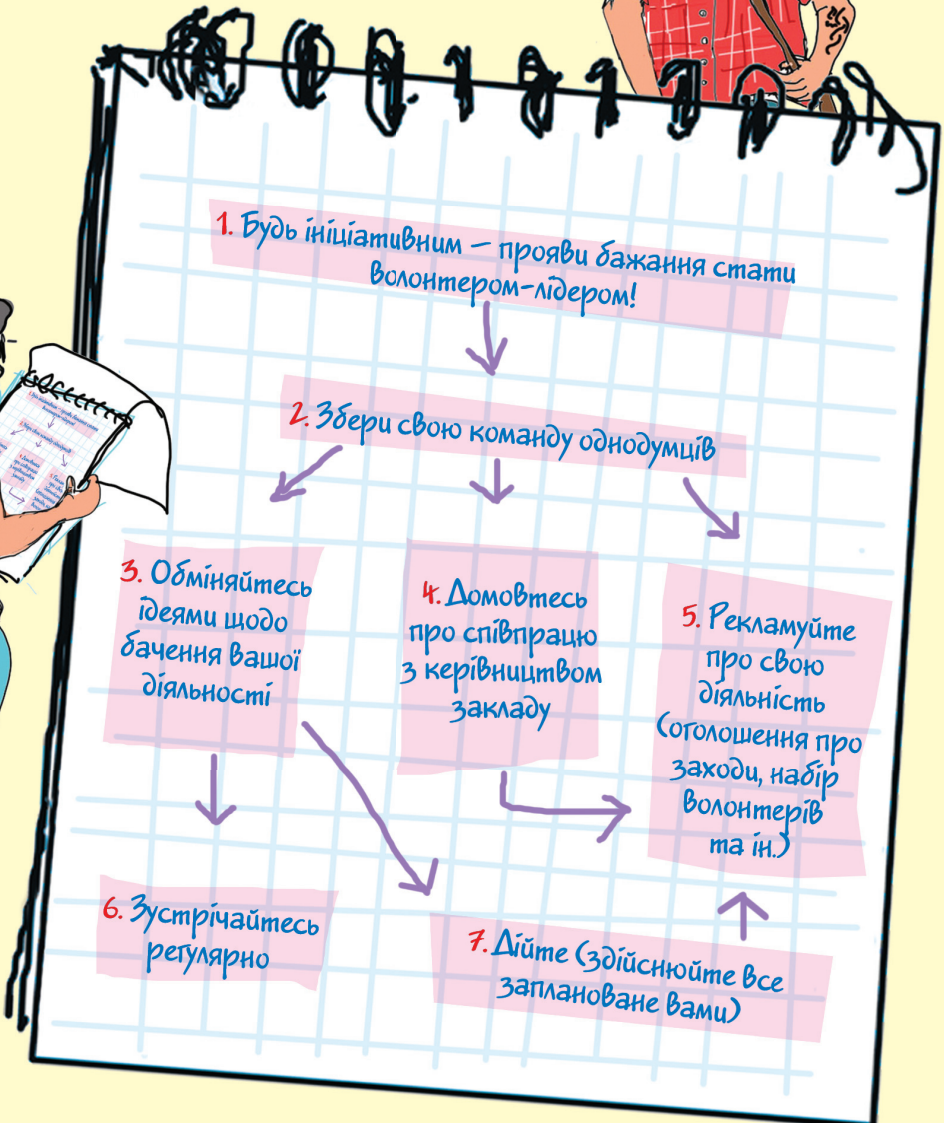 1. Будь ініціативним – прояви бажання стати
волонтером-лідером!
2. Збери свою команду однодумців
3. Обміняйтесь
ідеями щодо
бачення вашої
діяльності
4. Домовтесь
про співпрацю
з керівництвом
закладу
5. Рекламуйте
про свою
діяльність
(оголошення про
заходи, набір
волонтерів
та ін.)
6. Зустрічайтесь
регулярно
7. Дійте (здійснюйте все
заплановане вами)